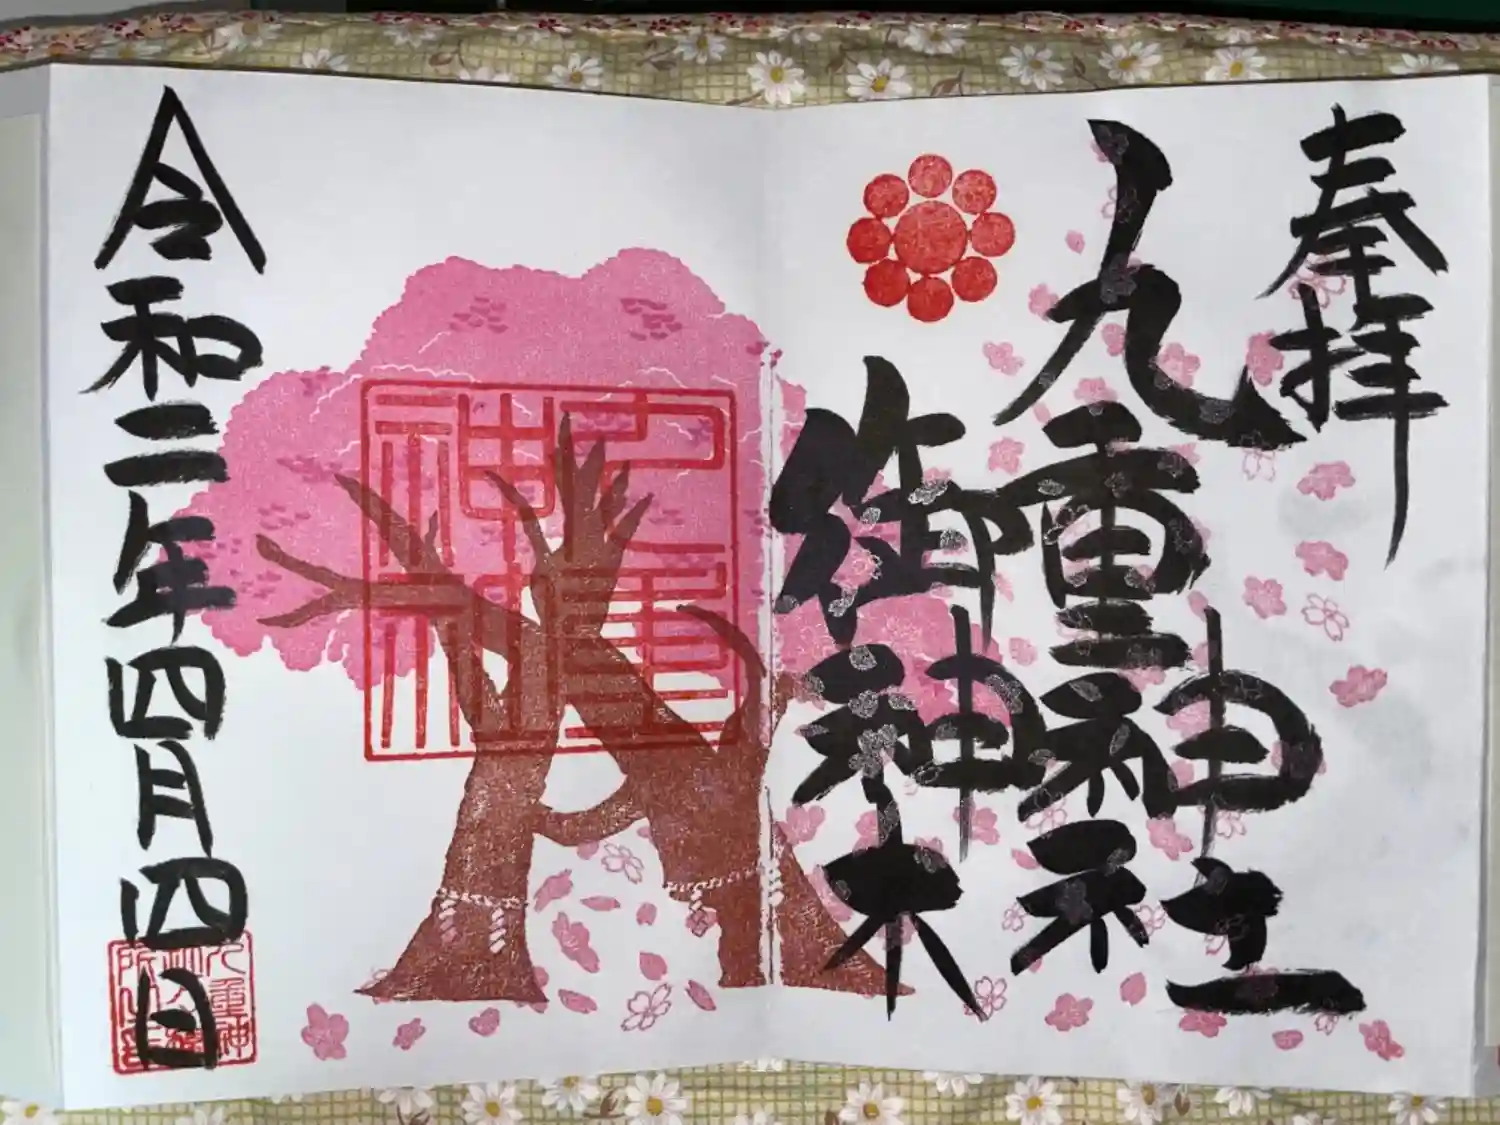 奉拝
九重神社
御神木
九重神社
令和二年四月四日